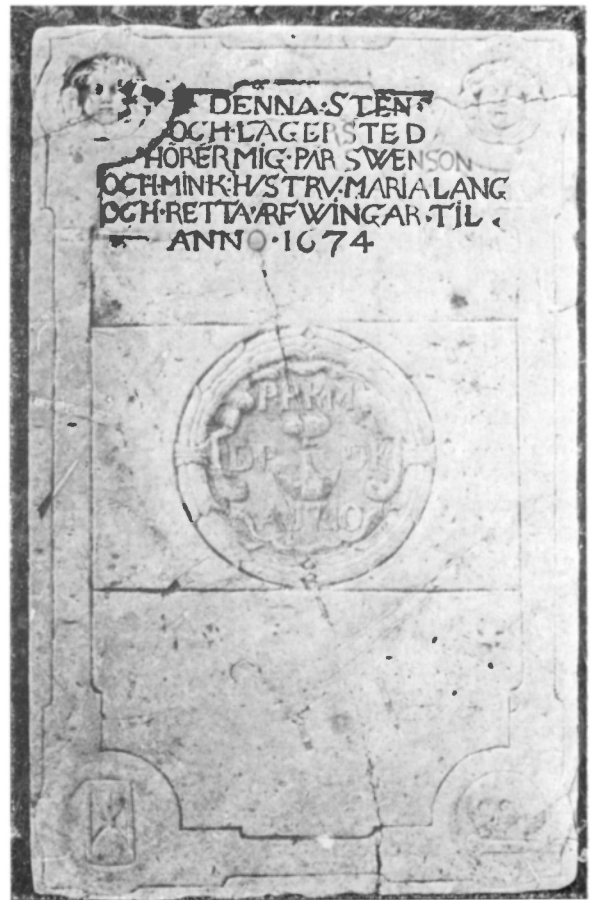 DENNA·STEN·
OCH·LAGERSTED
HÖRER MIG·PÄR SWENSON
OCH·MIN·K·HVSTRV·MARIA LANG
OCH·RETTA·ARFWINGAR·TIL
ANNO·1674
1710